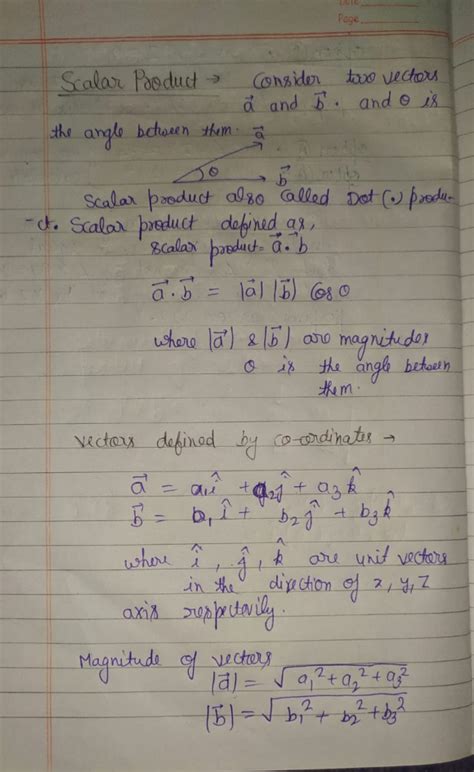 Date
Page
Scalar Product → Consider two vectors
a⃗ and b⃗ . and θ is
the angle between them. a⃗
θ
b⃗
Scalar product also called Dot (.) produ-
-ct. Scalar product defined as,
scalar product = a⃗ . b⃗
a⃗ . b⃗ = |a⃗| |b⃗| Cos θ
where |a⃗| & |b⃗| are magnitudes
θ is the angle between
them.
Vectors defined by co-ordinates →
a⃗ = a₁î + a₂ĵ + a₃k̂
b⃗ = b₁î + b₂ĵ + b₃k̂
where î , ĵ , k̂ are unit vectors
in the direction of x, y, z
axis respectavily.
Magnitude of vectors
|a⃗| = √(a₁² + a₂² + a₃²)
|b⃗| = √(b₁² + b₂² + b₃²)